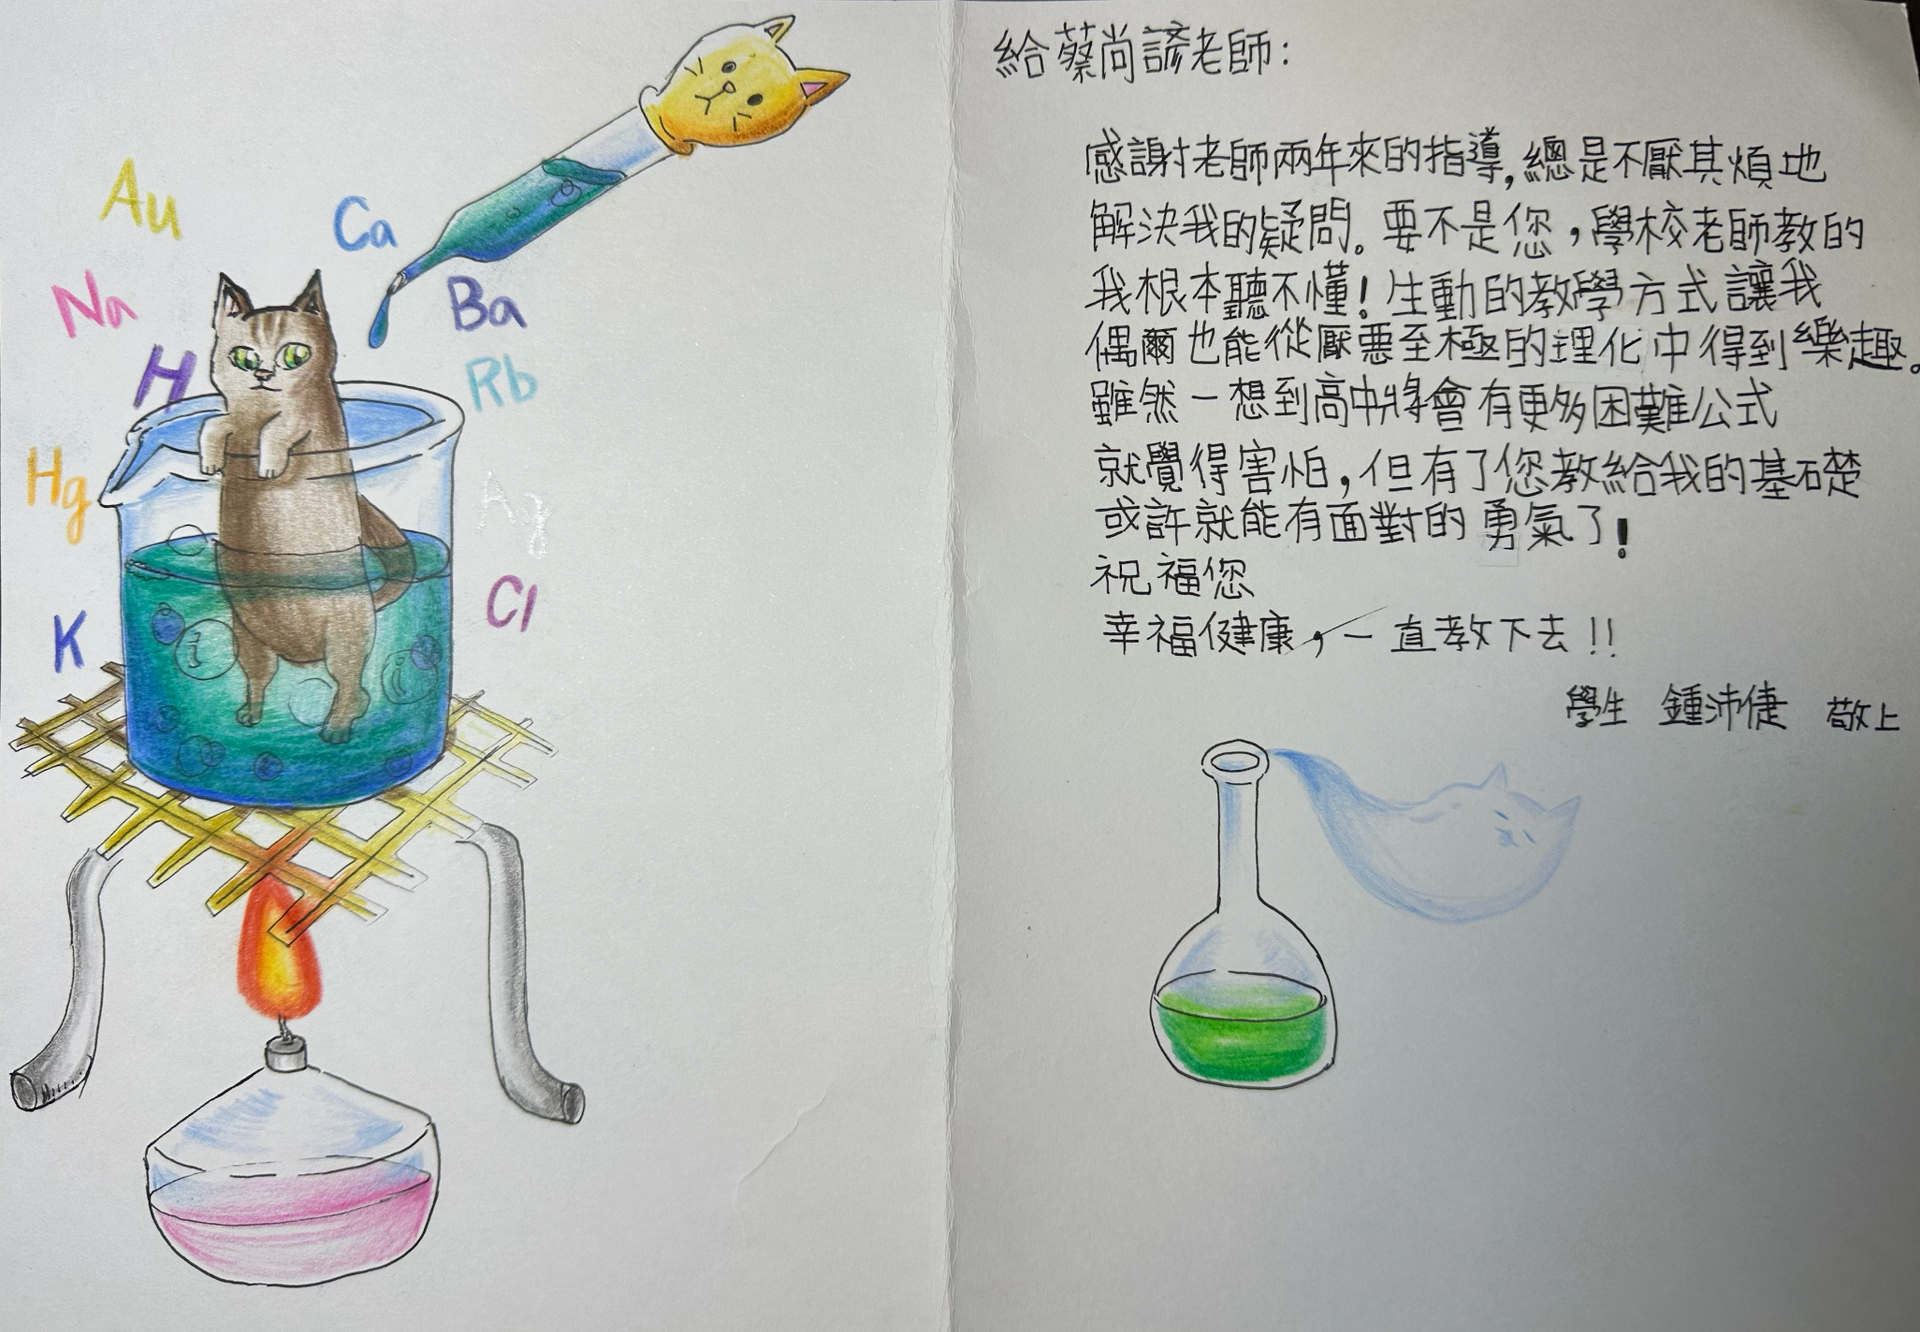 Au
Ca
Na
Ba
H
Rb
Hg
Ag
Cl
K
給蔡尚諺老師:
感謝老師兩年來的指導,總是不厭其煩地
解決我的疑問。要不是您,學校老師教的
我根本聽不懂!生動的教學方式讓我
偶爾也能從厭惡至極的理化中得到樂趣。
雖然一想到高中將會有更多困難公式
就覺得害怕,但有了您教給我的基礎
或許就能有面對的勇氣了!
祝福您
幸福健康,一直教下去!!
學生 鍾沛倢 敬上